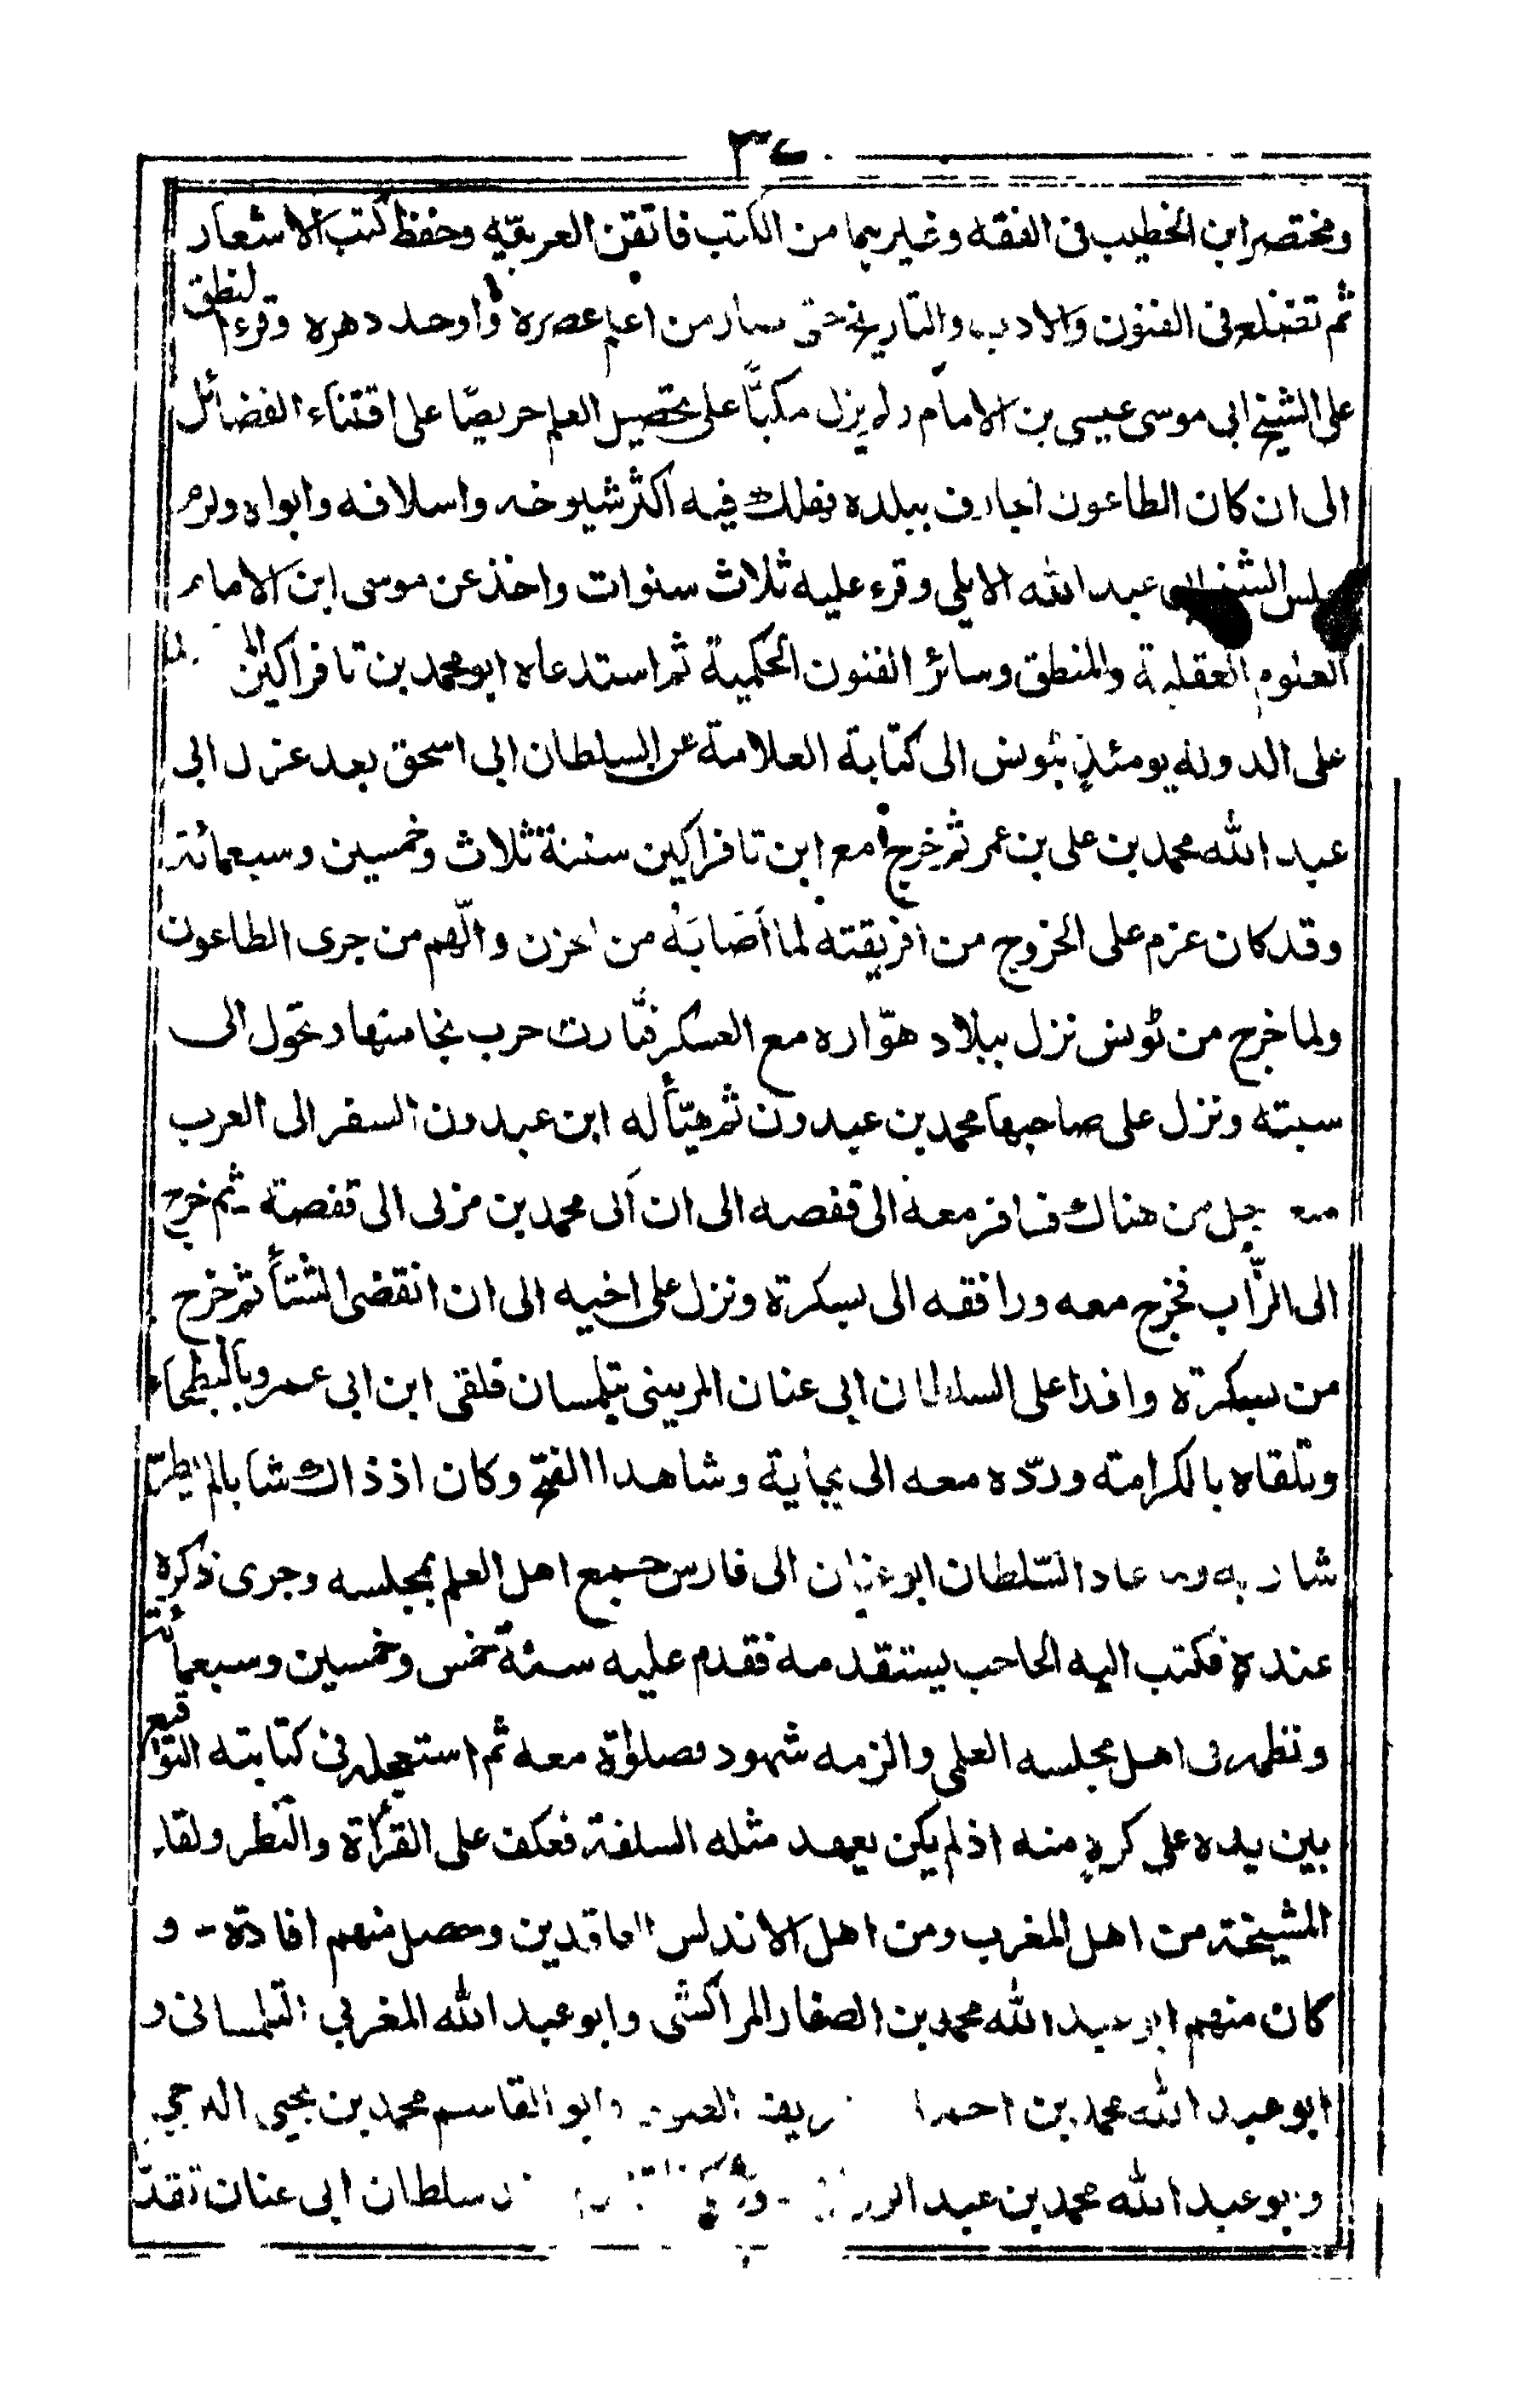 ٣٤
ومختصر ابن الخطيب فى الفقه وغيرهما من الكتب فاتقن العربيّه وحفظ كتب الاشعار
ثم تضلع فى الفنون والادب والتاريخ حتى صار من اعلم عصره واوحد دهره وقرء المنطق
على الشيخ ابى موسى عيسى بن الامام ولم يزل مكبّاً على تحصيل العلم حريصًا على اقتناء الفضائل
الى ان كان الطاعون الجارف ببلده فهلك فيه اكثر شيوخه واسلافه وابواه ولزم
مجلس الشيخ ابى عبد الله الابلى وقرء عليه ثلاث سنوات واخذ عن موسى ابن الامام
العلوم العقلية والمنطق وسائر الفنون الحكمية ثم استدعاه ابو محمد بن تافراكين
على الدولة يومئذٍ بتونس الى كتابة العلامة عن السلطان ابى اسحق بعد عزل ابى
عبد الله محمد بن على بن عمر ثم خرج مع ابن تافراكين سنة ثلاث وخمسين وسبعمائة
وقد كان عزم على الخروج من افريقته لما اصَابَهُ من الحزن والّهم من جرى الطاعون
ولما خرج من تونس نزل ببلاد هوّاره مع العسكر فثارت حرب نجا منها وتحول الى
سبته ونزل على صاحبها محمد بن عبدون ثم هيّأ له ابن عبدون السفر الى العرب
مع من هناك فسافر معه الى قفصه الى ان اتى محمد بن مزنى الى قفصة ثم خرج
الى الزّاب فخرج معه ورافقه الى بسكرة ونزل على اخيه الى ان انقضى الشتأ ثم خرج
من بسكرة وافدا على السلطان ابى عنان المرينى بتلمسان فلقى ابن ابى عمرو بالبطحاء
وتلقاه بالكرامته وردّه معه الى بجاية وشاهد الفتح وكان اذذاك شابا لم يطرّ
شاربه ولما عاد السّلطان ابو عنان الى فارس جمع اهل العلم بمجلسه وجرى ذكره
عنده فكتب اليه الحاجب يستقدمه فقدم عليه سنة خمس وخمسين وسبعمائة
ونظمه فى اهل مجلسه العلمى والزمه شهود صلواة معه ثم استعمله فى كتابته التواقيع
بين يده على كره منه اذ لم يكن يعهد مثله السلفة فعكف على القرأة والنظر ولقاء
المشيخة من اهل المغرب ومن اهل الاندلس الوافدين وحصل منهم افادة - و
كان منهم ابو عبد الله محمد بن الصفار المراكشى وابو عبد الله المغربي التلمسانى و
ابو عبد الله محمد بن احمد وابو القاسم محمد بن يحيى البرجى
وابو عبد الله محمد بن عبد الرزاق - سلطان ابى عنان